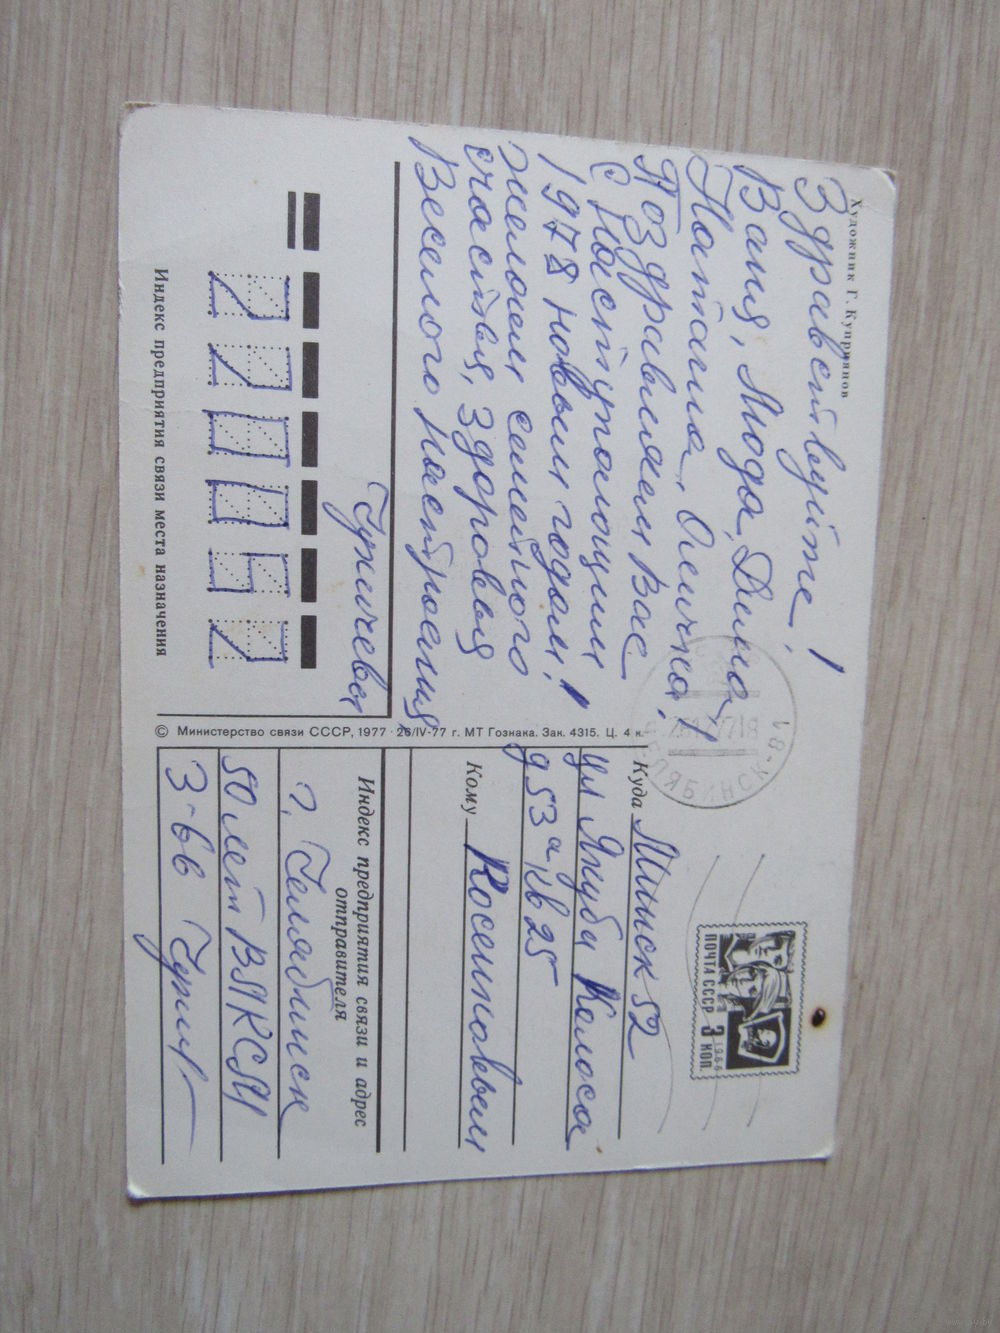 Художник Г. Куприянов
Здравствуйте!
Ваня, Люда, Дина,
Наташа, Олечка!
Поздравляем Вас
с Наступающим
1978 новым годом,
желаем семейного
счастья, здоровья
Веселого Настроения
220052
Индекс предприятия связи места назначения
© Министерство связи СССР, 1977 · 26/IV-77 г. МТ Гознака. Зак. 4315. Ц. 4 к.
ПОЧТА СССР 3 КОП.
1966
ЧЕЛЯБИНСК-84
Куда Минск 52
ул Якуба Коласа
д 53а кв 25
Кому
Индекс предприятия связи и адрес
отправителя
г. Челябинск
50 лет ВЛКСМ
3-66